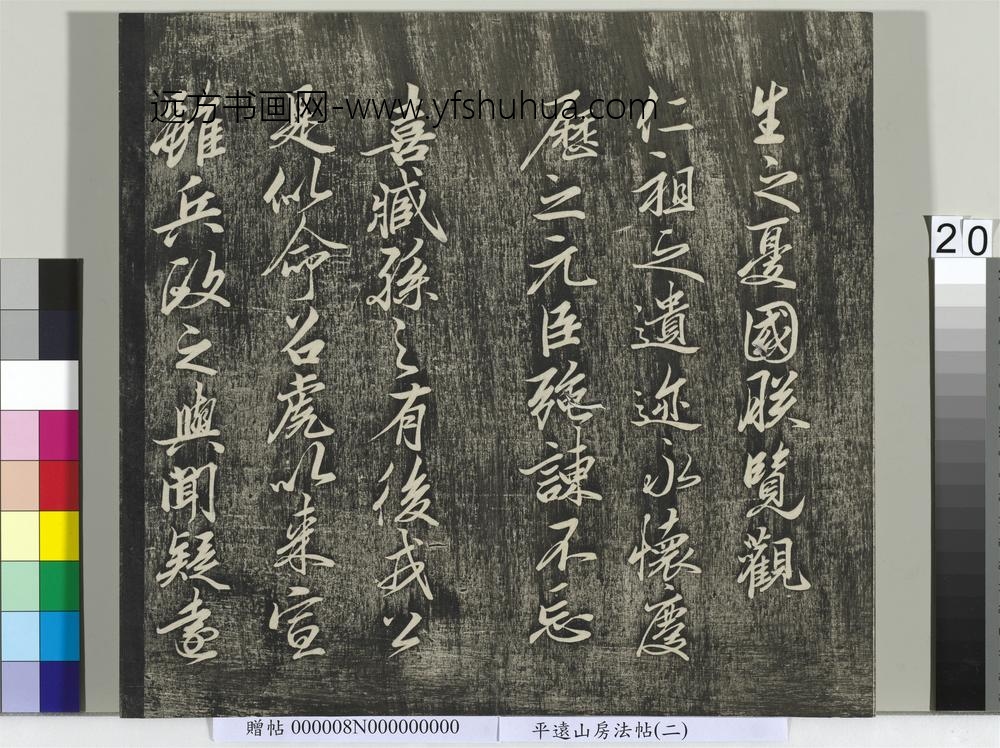 生之憂國朕覽觀
仁祖之遺迹永懷慶
歷之元臣強諫不忘
喜臧孫之有後戎公
是似命召虎以来宣
雖兵政之與聞疑遠
远方书画网-www.yfshuhua.com
20
贈帖 000008N000000000
平遠山房法帖(二)